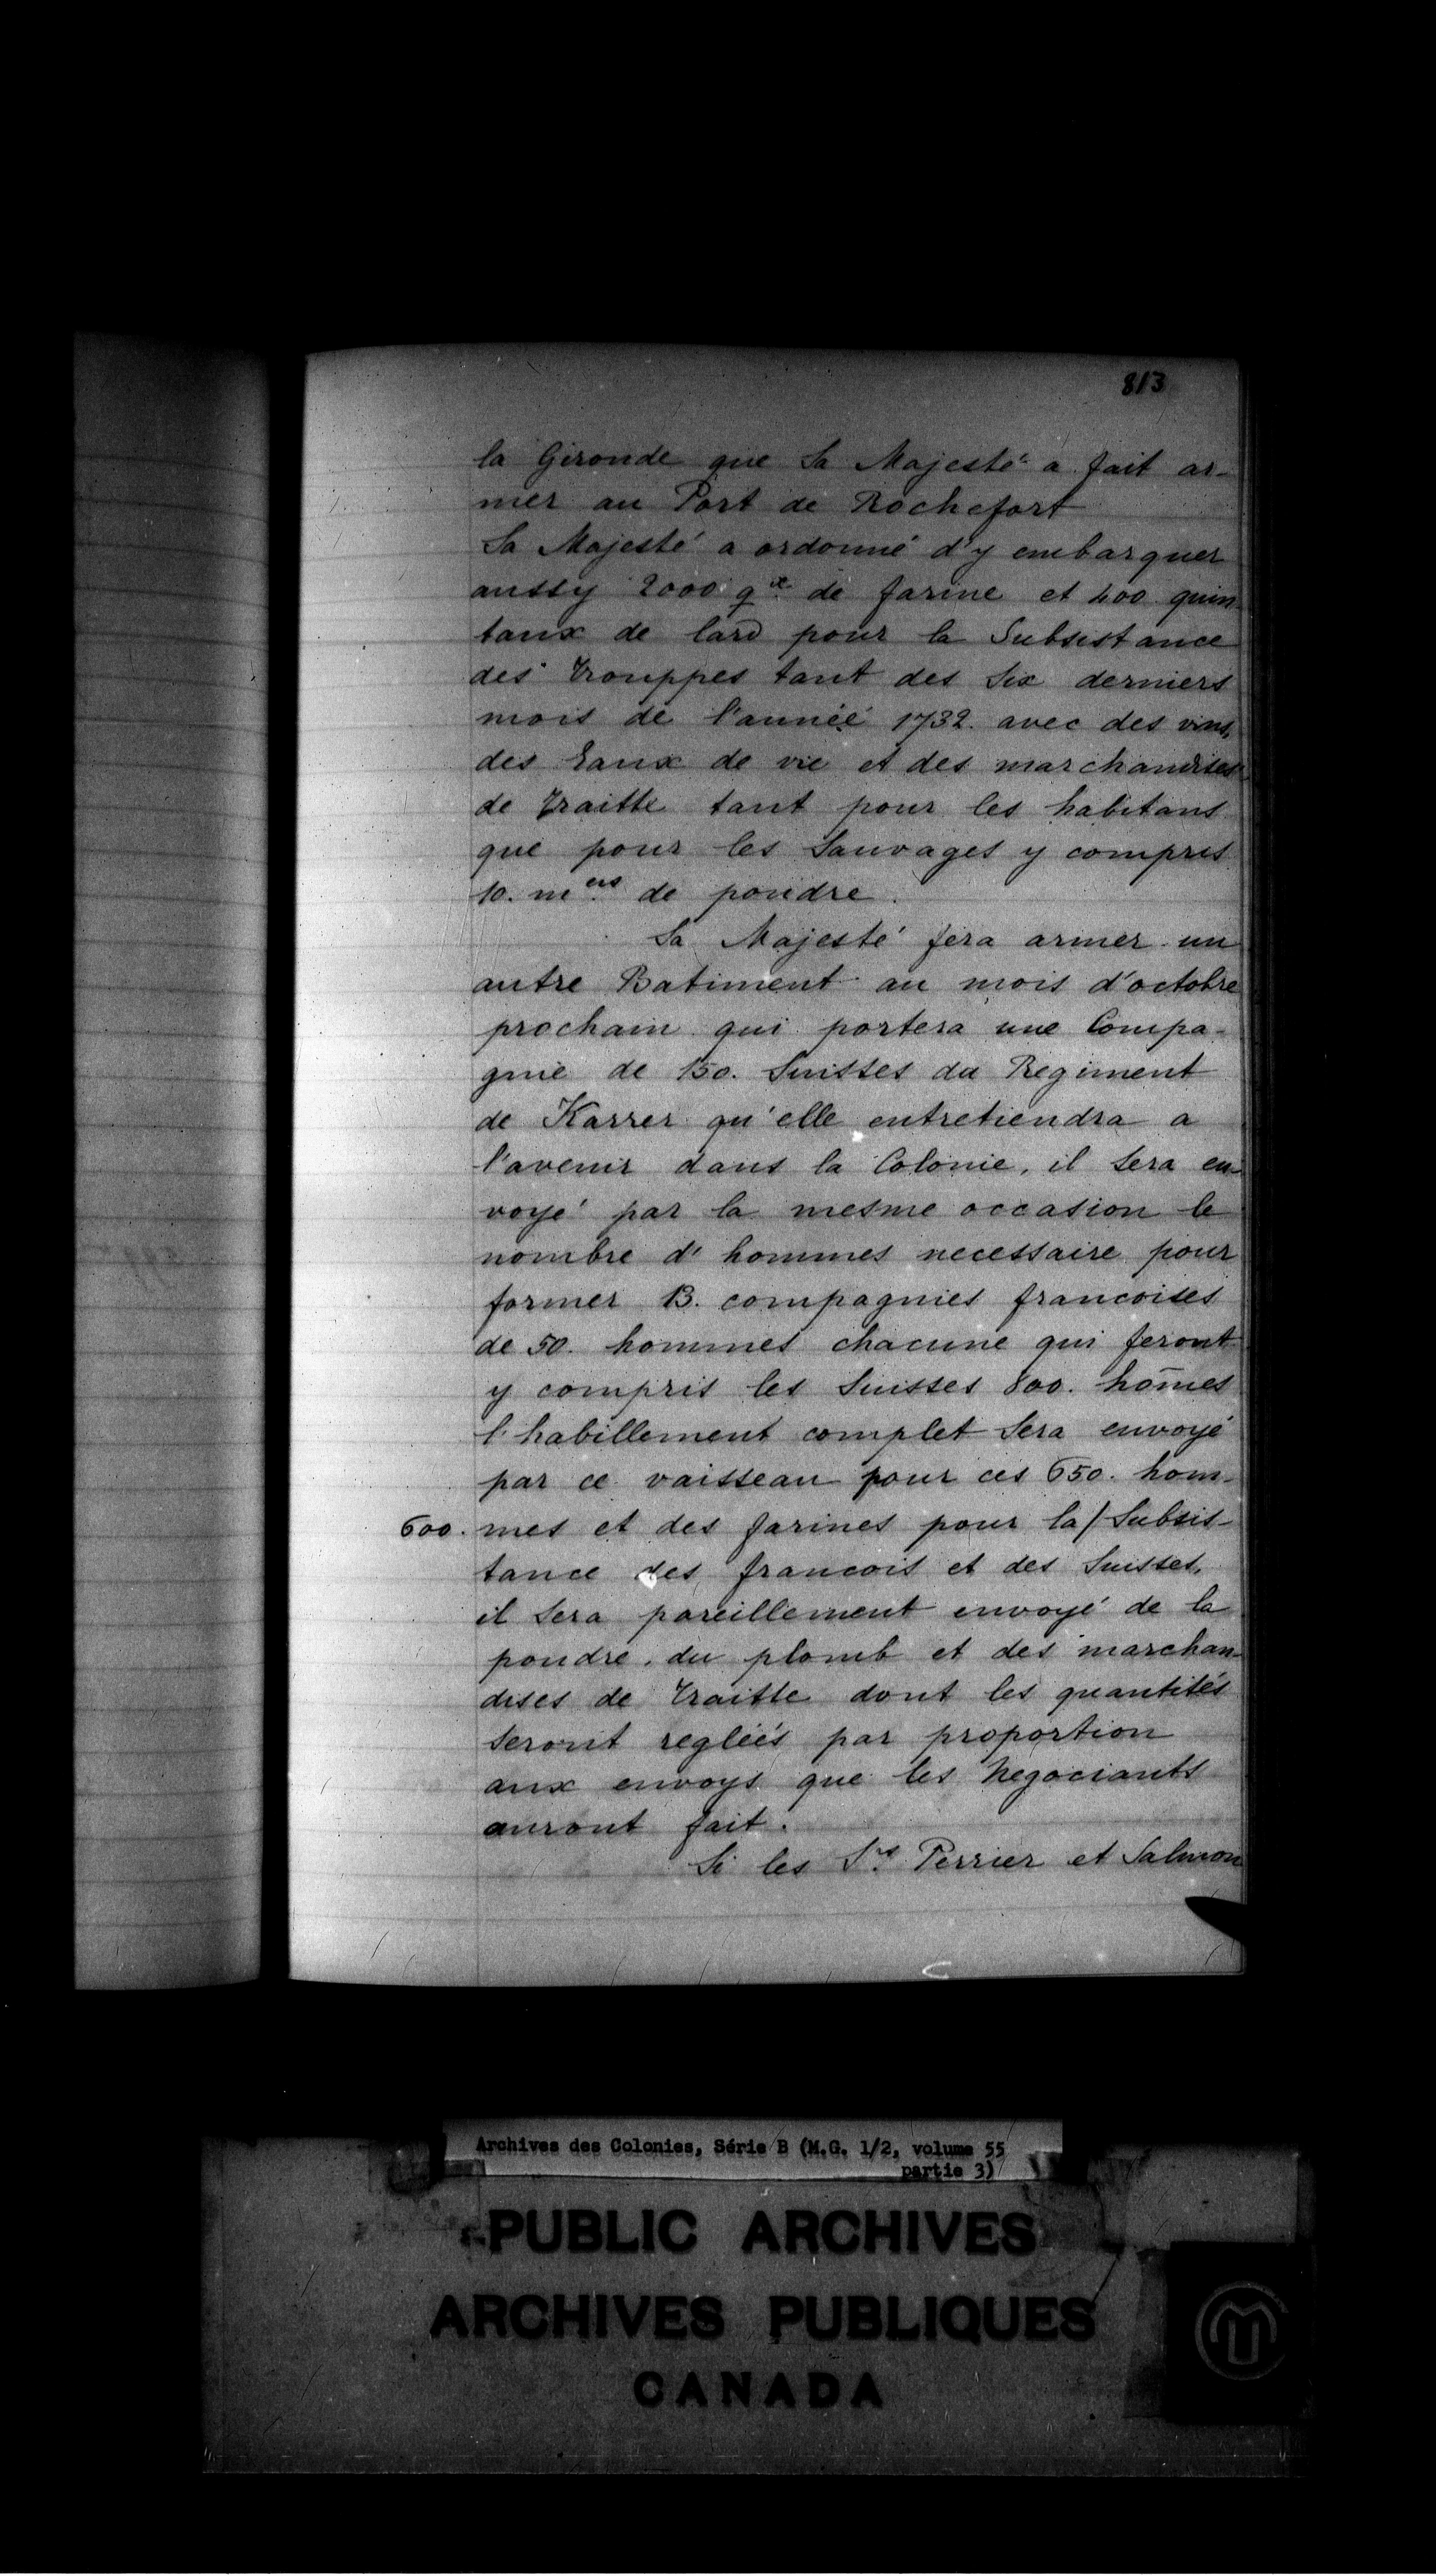 813
la Gironde que Sa Majesté a fait ar-
mer au Port de Rochefort
Sa Majesté a ordonné d'y embarquer
aussy 2000 qx de farine et 400 quin-
taux de lard pour la Subsistance
des Trouppes tant des Six derniers
mois de l'année 1732. avec des vins,
des Eaux de vie et des marchandises
de Traitte tant pour les habitans
que pour les Sauvages y compris
10. mers de poudre.
Sa Majesté fera armer un
autre Batiment au mois d'octobre
prochain qui portera une Compa-
gnie de 150. Suisses du Regiment
de Karrer qu'elle entretiendra a
l'avenir dans la Colonie, il Sera en-
voyé par la mesme occasion le
nombre d'hommes necessaire pour
former 13. compagnies francoises
de 50. hommes chacune qui feront
y compris les Suisses 800. hom̄es
l'habillement complet Sera envoyé
par ce vaisseau pour ces 650. hom-
600. mes et des farines pour la / Subsis-
tance des francois et des Suisses,
il Sera pareillement envoyé de la
poudre, du plomb et des marchan-
dises de Traitte dont les quantités
Seront regléés par proportion
aux envoys que les Negociants
auront fait.
Si les Srs Perrier et Salmon
Archives des Colonies, Série B (M.G. 1/2, volume 55
partie 3)
PUBLIC ARCHIVES
ARCHIVES PUBLIQUES
CANADA